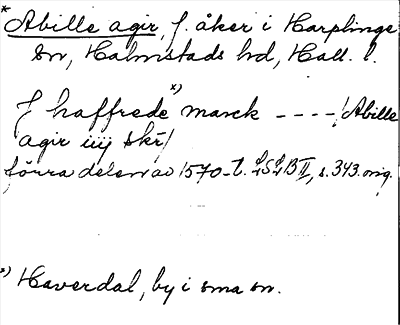 * Abille agir, f. åker i Harplinge
sn, Halmstads hd, Hall. l.
J haffrede x) marck ----/Abille
agir iiij skr/
förra delen av 1570-t. LSLB II, s. 343. orig.
x) Haverdal, by i sma sn.